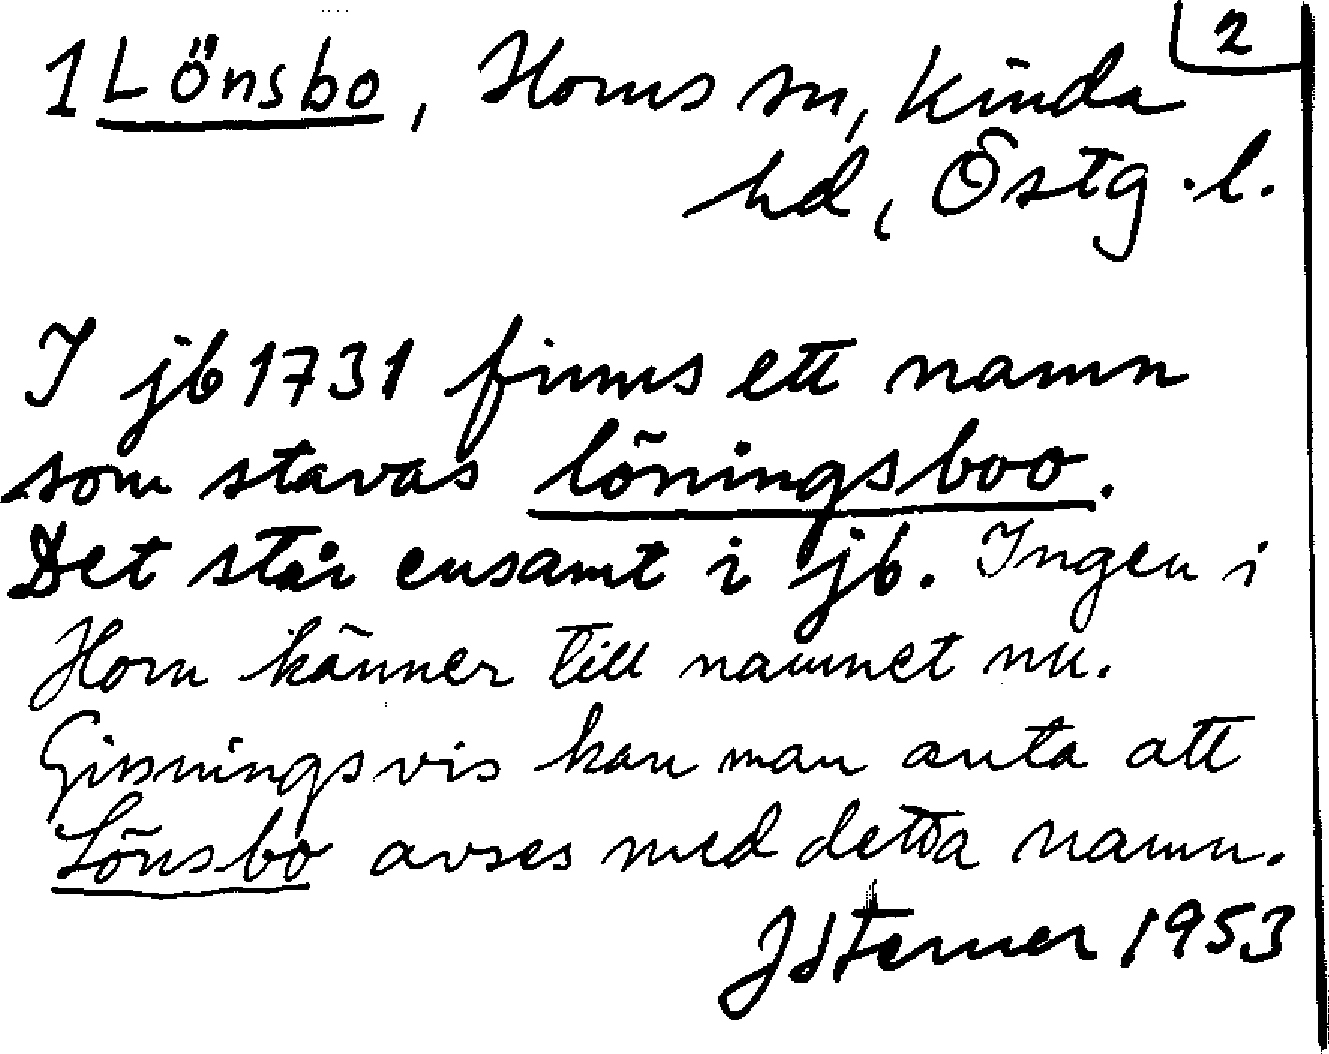 2
1 Lönsbo, Horns sn, Kinda
hd, Östg.l.
I jb 1731 finns ett namn
som stavas löningsboo.
Det står ensamt i jb. Ingen i
Horn känner till namnet nu.
Gissningsvis kan man anta att
Lönsbo avses med detta namn.
1953